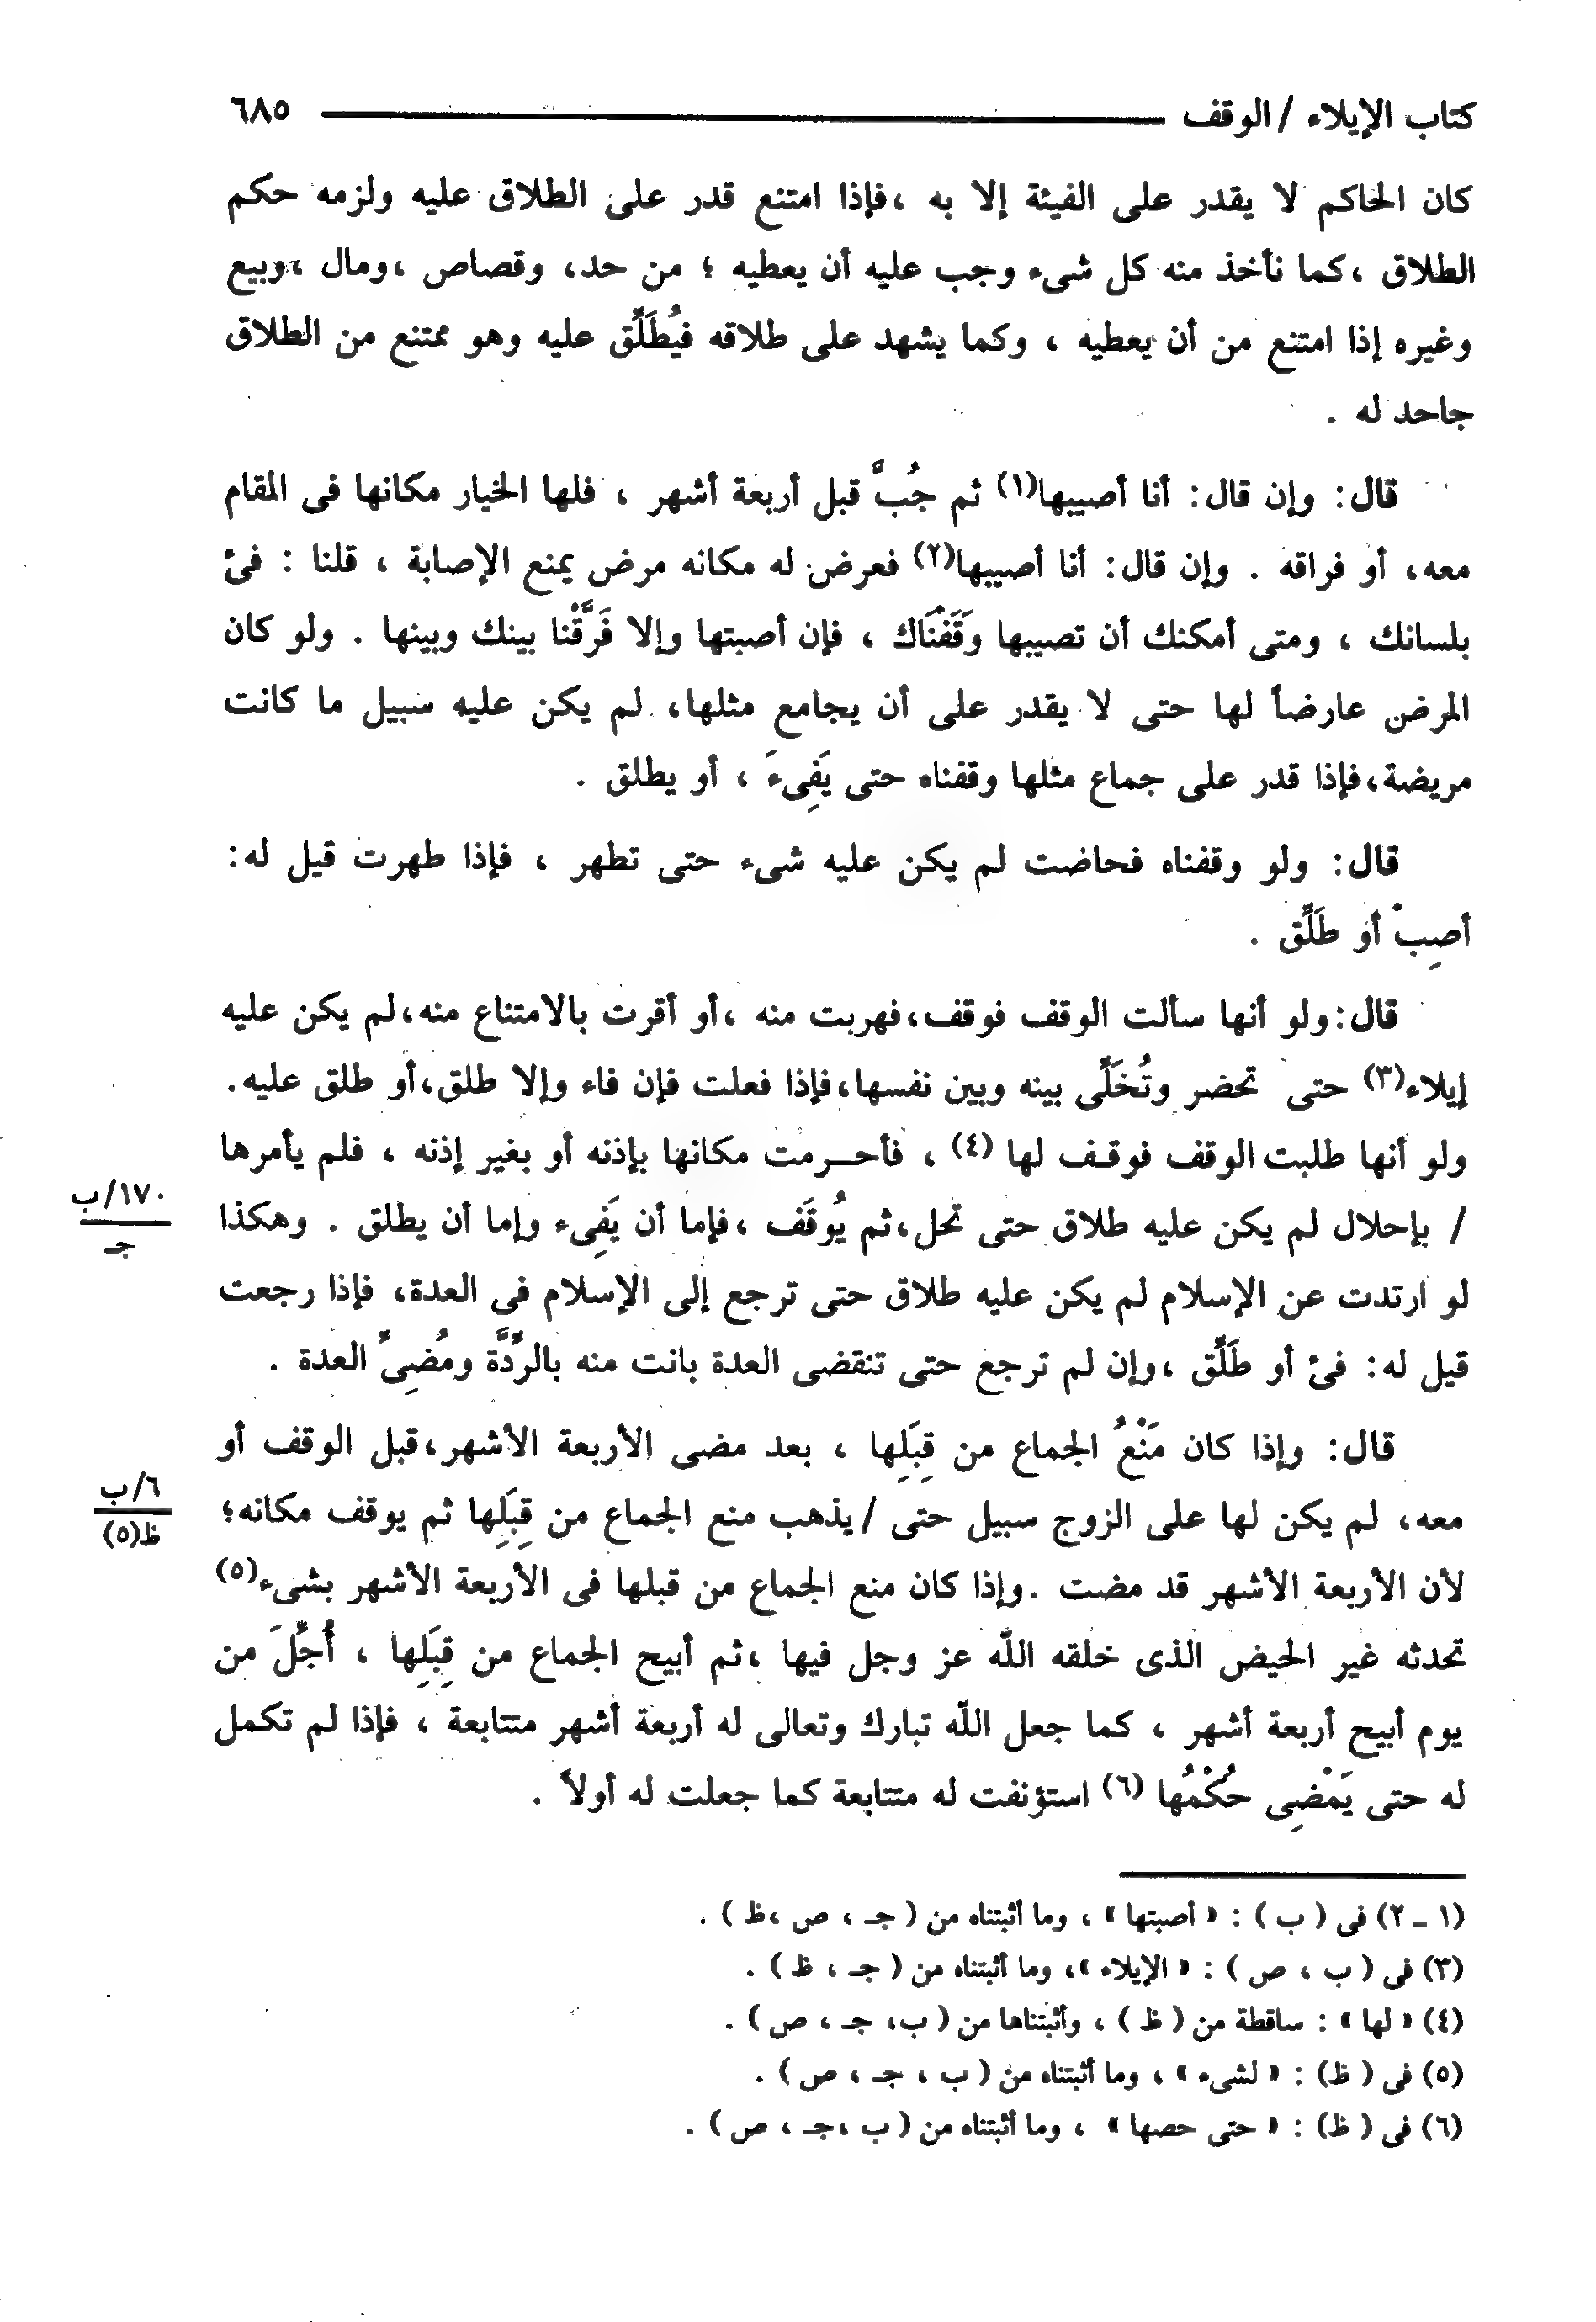 كتاب الإيلاء / الوقف ٦٨٥
كان الحاكم لا يقدر على الفيئة إلا به ،فإذا امتنع قدر على الطلاق عليه ولزمه حكم
الطلاق ،كما نأخذ منه كل شىء وجب عليه أن يعطيه ؛ من حد، وقصاص ،ومال ،وبيع
وغيره إذا امتنع من أن يعطيه ، وكما يشهد على طلاقه فيُطَلَّق عليه وهو ممتنع من الطلاق
جاحد له .
قال: وإن قال: أنا أصيبها(١) ثم جُبَّ قبل أربعة أشهر ، فلها الخيار مكانها فى المقام
معه، أو فراقه . وإن قال: أنا أصيبها(٢) فعرض له مكانه مرض يمنع الإصابة ، قلنا : فئ
بلسانك ، ومتى أمكنك أن تصيبها وَقَفْنَاك ، فإن أصبتها وإلا فَرَّقْنا بينك وبينها . ولو كان
المرض عارضاً لها حتى لا يقدر على أن يجامع مثلها، لم يكن عليه سبيل ما كانت
مريضة،فإذا قدر على جماع مثلها وقفناه حتى يَفِىءَ ، أو يطلق .
قال: ولو وقفناه فحاضت لم يكن عليه شىء حتى تطهر ، فإذا طهرت قيل له:
أصِبْ أو طَلِّق .
قال:ولو أنها سألت الوقف فوقف،فهربت منه ،أو أقرت بالامتناع منه،لم يكن عليه
إيلاء(٣) حتى تحضر وتُخَلِّى بينه وبين نفسها،فإذا فعلت فإن فاء وإلا طلق،أو طلق عليه.
ولو أنها طلبت الوقف فوقـف لها (٤) ، فأحـــرمت مكانها بإذنه أو بغير إذنه ، فلم يأمرها
١٧٠/ب
جـ
/ بإحلال لم يكن عليه طلاق حتى تحل،ثم يُوقَف ،فإما أن يَفِىء وإما أن يطلق . وهكذا
لو ارتدت عن الإسلام لم يكن عليه طلاق حتى ترجع إلى الإسلام فى العدة، فإذا رجعت
قيل له: فئ أو طَلِّق ،وإن لم ترجع حتى تنقضى العدة بانت منه بالرِّدَّة ومُضِىِّ العدة .
قال: وإذا كان مَنْعُ الجماع من قِبَلِها ، بعد مضى الأربعة الأشهر،قبل الوقف أو
٦/ب
ظ(٥)
معه، لم يكن لها على الزوج سبيل حتى /يذهب منع الجماع من قِبَلِها ثم يوقف مكانه؛
لأن الأربعة الأشهر قد مضت .وإذا كان منع الجماع من قبلها فى الأربعة الأشهر بشىء(٥)
تحدثه غير الحيض الذى خلقه الله عز وجل فيها ،ثم أبيح الجماع من قِبَلِها ، أُجِّلَ من
يوم أبيح أربعة أشهر ، كما جعل الله تبارك وتعالى له أربعة أشهر متتابعة ، فإذا لم تكمل
له حتى يَمْضِى حُكْمُها (٦) استؤنفت له متتابعة كما جعلت له أولاً .
(١ - ٢) فى ( ب ) : « أصبتها » ، وما أثبتناه من ( جـ ، ص ،ظ ) .
(٣) فى ( ب ، ص ) : « الإيلاء »، وما أثبتناه من ( جـ ، ظ ) .
(٤) « لها » : ساقطة من ( ظ ) ، وأثبتناها من ( ب، جـ ، ص ) .
(٥) فى ( ظ) : « لشىء » ، وما أثبتناه من ( ب ، جـ ، ص ) .
(٦) فى ( ظ) : « حتى حصها » ، وما أثبتناه من ( ب ،جـ ، ص ) .